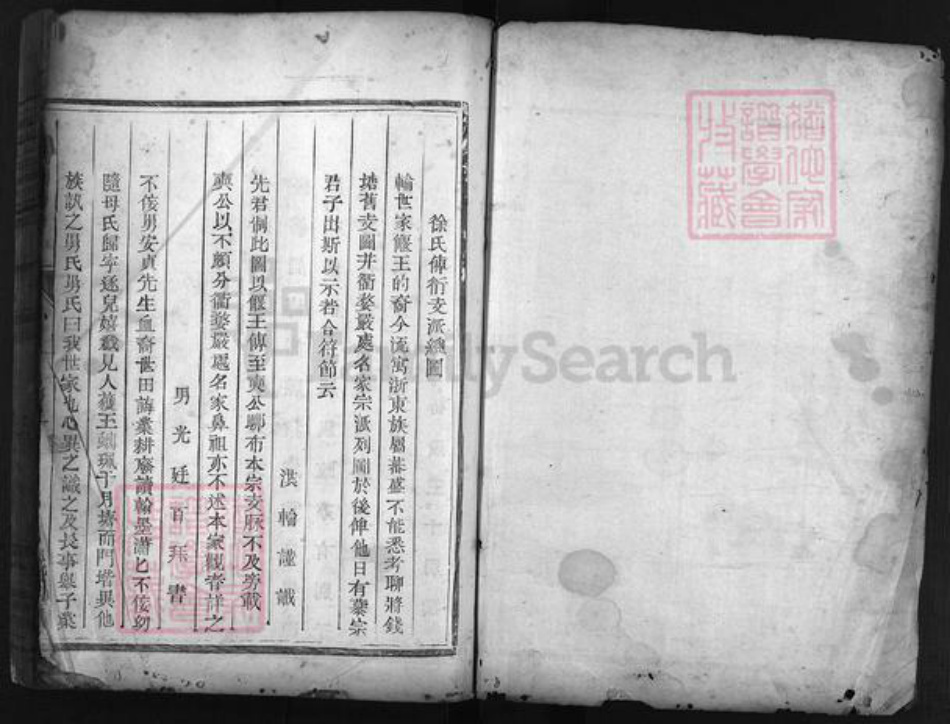 徐氏傳衍支派總圖
輪世家偃王的裔今流寓浙東族屬蕃盛不能悉考聊將錢
塘舊支圖并衢婺嚴處名家宗派列圖於後俾他日有棻宗
君子出斯以示若合符節云
洪輪謹識
先君側此圖以偃王傳至奭公聊布本宗支脉不及旁載
奭公以不顯分衢婺嚴處名家鼻祖亦不述本家觀者詳之
男光廷百拜書
不佞男安貞先生血裔世田誨業耕廢讀翰墨瀟匕不佞幼
隨母氏歸寧逐兒嬉戲見人穫王 珮于月塘而門堦異他
族訊之舅氏舅氏曰我世家也心異之識之及長事舉子業
譜仙家
譜學會
收藏
FamilySearch